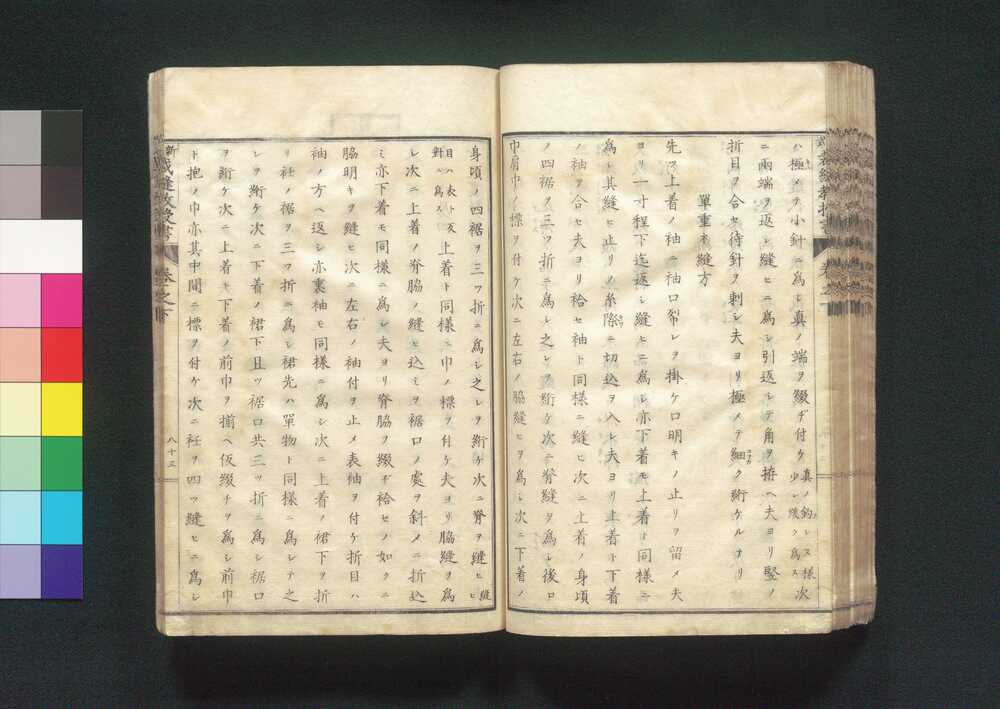 ハ極メテ小針ニ爲シ真ノ端ヲ綴ヂ付ケ真ノ釣レヌ様少シ緩ク爲ス次
ニ兩端ヲ返シ縫ヒニ爲シ引返シテ角ヲ拵ヘ夫ヨリ竪ノ
折目ヲ合セ待針ヲ刺シ夫ヨリ極メテ細ク絎ケルナリ
單重子縫方
先ヅ上着ノ袖ニ袖口裂レヲ掛ケロ明キノ止リヲ留メ夫
ヨリ一寸程下迄返シ縫ヒニ爲シ亦下着モ上着ト同様ニ
爲シ其縫ヒ止リノ糸際ニ切込ヲ入レ夫ヨリ上着ト下着
ノ袖ヲ合セ夫ヨリ袷セ袖ト同様ニ縫ヒ次ニ上着ノ身頃
ノ四裾ヲ三ツ折ニ爲シ之レヲ絎ケ次ニ脊縫ヲ爲シ後ロ
巾肩巾ノ標ヲ付ケ次ニ左右ノ脇縫ヒヲ爲シ次ニ下着ノ
身頃ノ四裾ヲ三ツ折ニ爲シ之レヲ絎ケ次ニ脊ヲ縫ヒ縫ヒ
目ハ表ト反對ニ爲ス上着ト同様ニ巾ノ標ヲ付ケ夫ヨリ脇縫ヲ爲
レ次ニ上着ノ脊脇ノ縫ヒ込ミヲ裾口ノ處ヲ斜メニ折込
ミ亦下着モ同様ニ爲シ夫ヨリ脊脇ヲ綴ヂ袷セノ如クニ
脇明キヲ縫ヒ次ニ左右ノ袖付ヲ止メ表袖ヲ付ケ折目ハ
袖ノ方ヘ返シ亦裏袖モ同様ニ爲シ次ニ上着ノ裙下ヲ折
リ衽ノ裾ヲ三ツ折ニ爲シ裙先ハ單物ト同様ニ爲シテ之
レヲ絎ケ次ニ下着ノ裙下且ツ裾口共三ツ折ニ爲シ裾口
ヲ絎ケ次ニ上着モ下着ノ前巾ヲ揃ヘ仮綴チヲ爲シ前巾
ト抱ノ巾亦其中間ニ標ヲ付ケ次ニ衽ヲ四ツ縫ヒニ爲シ
裁縫教授書
卷之下
八十三